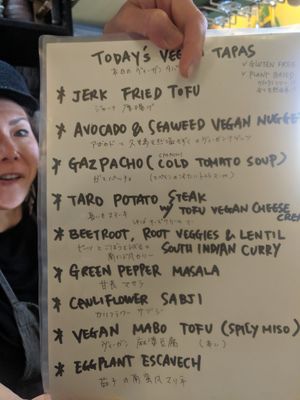 TODAY'S VEGAN TAPAS
本日のヴィーガンタパス
✓ GLUTEN FREE
✓ PLANT BASED
* JERK FRIED TOFU
ジャーク厚揚げ
* AVOCADO & SEAWEED VEGAN NUGGET
* GAZPACHO (SPANISH COLD TOMATO SOUP)
ガスパチョ
* TARO POTATO STEAK
W/ TOFU VEGAN CHEESE CREAM
* BEETROOT, ROOT VEGGIES & LENTIL
SOUTH INDIAN CURRY
南インドカリー
* GREEN PEPPER MASALA
甘長マサラ
* CAULIFLOWER SABJI
カリフラワーサブジ
* VEGAN MABO TOFU (SPICY MISO)
ヴィーガン麻婆豆腐 (辛い)
* EGGPLANT ESCAVECH
茄子の南蛮風マリネ